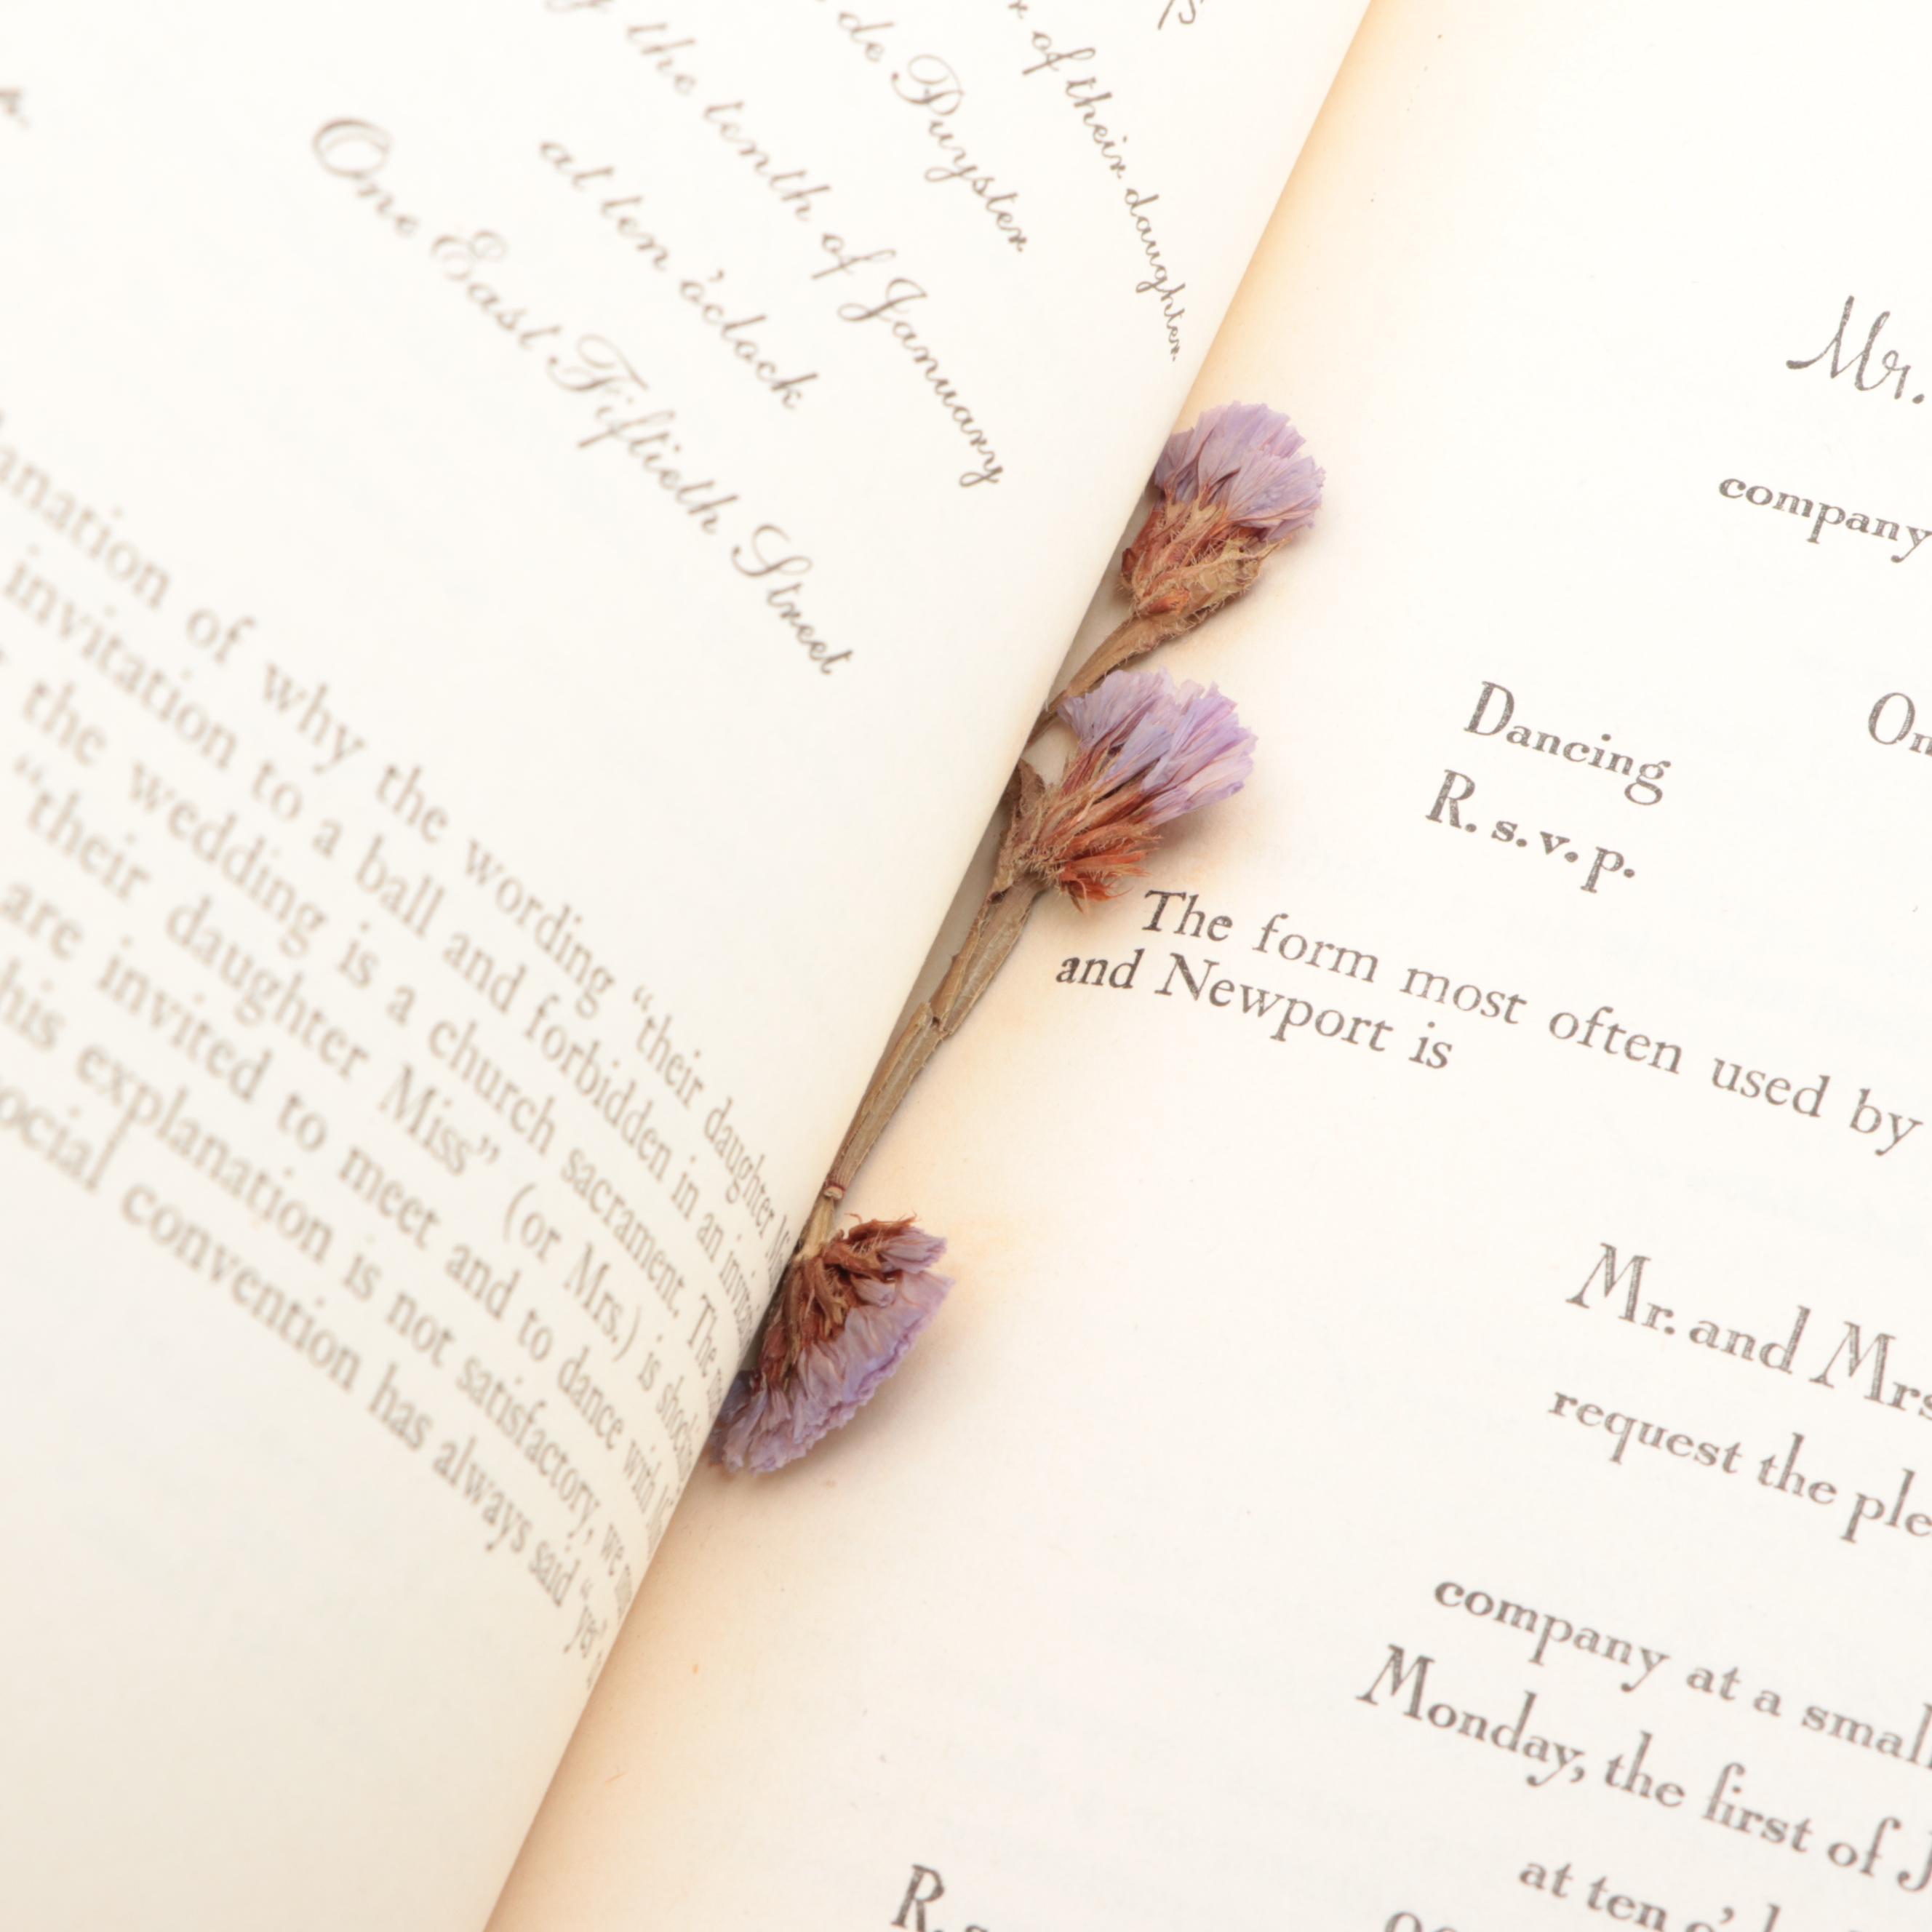 of their daughter
de Puyster
the tenth of January
at ten o'clock
One East Fiftieth Street
of why the wording “their daughter
invitation to a ball and forbidden in an
the wedding is a church sacrament. The
“their daughter Miss” (or Mrs.) is
are invited to meet and to dance with
explanation is not satisfactory, we
convention has always said “yes”
Mr.
company
Dancing
R. s. v. p.
The form most often used by
and Newport is
Mr. and
request the
company at a small
Monday, the first of
at ten